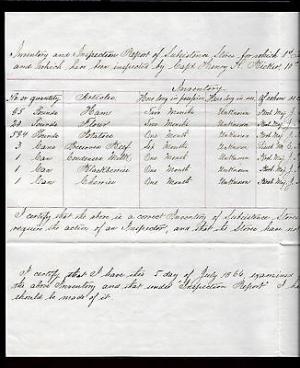 Inventory and Inspection Report of Subsistence Stores for which 1st
and which have been inspected by Capt. Henry H.
Inventory
No or quantity Articles How long in possession How long in use Of whom
65 Pounds Ham Two Months Unknown
Pounds Flour Months Unknown
594 Pounds Potatoes One Month Unknown
3 Cans Beef Six Months Unknown
1 Can Condensed Milk One Month Unknown
1 Can Blackberries One Month Unknown
1 Can Cherries One Month Unknown
I certify that the above is a correct Inventory of Subsistence Stores
require the action of an Inspector, and that the Stores have not
I certify that I have this 5 day of July 1864, examined
the above Inventory and that under "Inspection Report" I
should be made of it